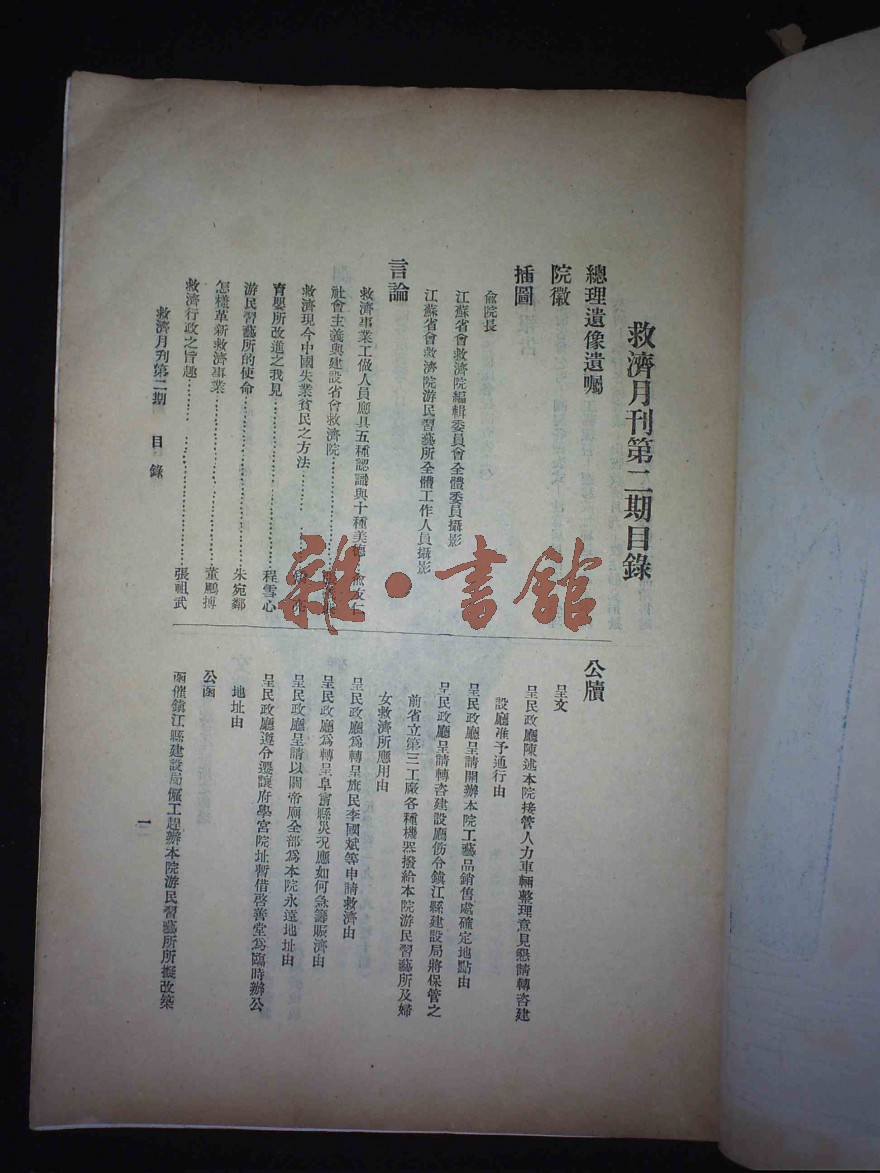 救濟月刊第二期目錄
總理遺像遺囑
院徽
插圖
俞院長
江蘇省會救濟院編輯委員會全體委員攝影
江蘇省會救濟院游民習藝所全體工作人員攝影
言論
救濟事業工做人員應具五種認識與十種美德
社會主義與建設省會救濟院
救濟現今中國失業貧民之方法
育嬰所改進之我見 程雪心
游民習藝所的使命 朱宛鄰
怎樣革新救濟事業 董鵬搏
救濟行政之旨趣 張祖武
公牘
呈文
呈民政廳陳述本院接管人力車輛整理意見懇請轉咨建
設廳准予通行由
呈民政廳呈請開辦本院工藝品銷售處確定地點由
呈民政廳呈請轉咨建設廳飭令鎮江縣建設局將保管之
前省立第三工廠各種機器撥給本院游民習藝所及婦
女救濟所應用由
呈民政廳為轉呈旗民李國斌等申請救濟由
呈民政廳為轉呈阜寧縣災況應如何急籌賑濟由
呈民政廳呈請以關帝廟全部為本院永遠地址由
呈民政廳遵令遷讓府學宮院址暫借啓善堂為臨時辦公
地址由
公函
函催鎮江縣建設局僱工趕辦本院游民習藝所所擬改築
救濟月刊第二期 目錄
一
雜·書館